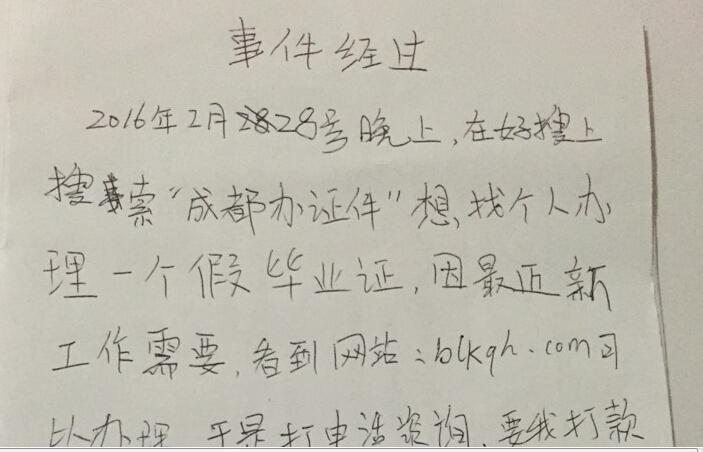 事件经过
2016年2月28号晚上,在好搜上
搜索"成都办证件"想找个人办
理一个假毕业证,因最近新
工作需要,看到网站:blkqh.com可
以办理 于是打电话咨询,要我打款